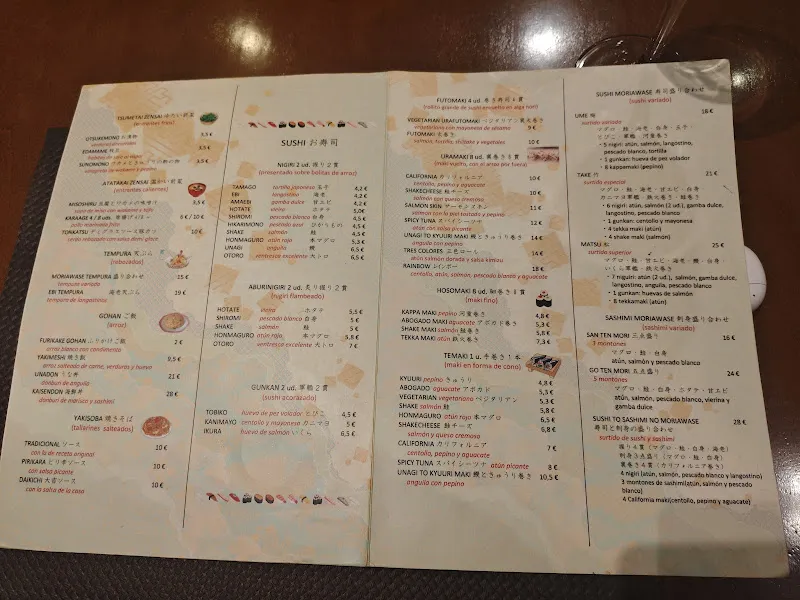 TSUMETAI ZENSAI 冷たい前菜
(entrantes fríos)
OTSUKEMONO お漬物 3,5 €
EDAMAME 枝豆 3,5 €
SUNOMONO 3,5 €
ATATAKAI ZENSAI 温かい前菜
(entrantes calientes)
MISOSHIRU 3,5 €
sopa de miso con wakame y tofu
KARAAGE 4 / 8 uds. 6 € / 10 €
pollo marinado frito
TONKATSU 10 €
cerdo rebozado con salsa demi glace
TEMPURA 天ぷら
(rebozados)
MORIAWASE TEMPURA 盛り合わせ 15 €
tempura variada
EBI TEMPURA 海老天ぷら 19 €
tempura de langostinos
GOHAN ご飯
(arroz)
FURIKAKE GOHAN ふりかけご飯 2 €
arroz blanco con condimento
YAKIMESHI 焼き飯 9,5 €
arroz salteado de carne, verduras y huevo
UNADON うな丼 21 €
donburi de anguila
KAISENDON 海鮮丼 28 €
donburi de marisco y sashimi
YAKISOBA 焼きそば
(tallarines salteados)
TRADICIONAL ソース 10 €
con la de receta original
PIRIKARA ピリ辛ソース 10 €
con salsa picante
DAIKICHI 大吉ソース 10 €
con la salsa de la casa
SUSHI お寿司
NIGIRI 2 ud. 握り2貫
(presentado sobre bolitas de arroz)
TAMAGO tortilla japonesa 玉子 4,2 €
EBI langostino 海老 4,2 €
AMAEBI gamba dulce 甘エビ 4,2 €
HOTATE vieira ホタテ 5,0 €
SHIROMI pescado blanco 白身 4,5 €
HIKARIMONO pescado azul ひかりもの 4,5 €
SHAKE salmón 鮭 4,5 €
HONMAGURO atún rojo 本マグロ 5,3 €
UNAGI anguila 鰻 6,5 €
OTORO ventresca excelente 大トロ 6,5 €
ABURINIGIRI 2 ud. 炙り握り2貫
(nigiri flambeado)
HOTATE vieira ホタテ 5,5 €
SHIROMI pescado blanco 白身 5 €
SHAKE salmón 鮭 5 €
HONMAGURO atún rojo 本マグロ 5,8 €
OTORO ventresca excelente 大トロ 7 €
GUNKAN 2 ud. 軍艦2貫
(sushi acorazado)
TOBIKO hueva de pez volador とびこ 4,5 €
KANIMAYO centollo y mayonesa カニマヨ 5 €
IKURA huevo de salmón いくら 6,5 €
FUTOMAKI 4 ud. 巻き寿司4貫
(rollito grande de sushi envuelto en alga nori)
VEGETARIAN URAFUTOMAKI ベジタリアン裏太巻き
vegetariano con mayonesa de sésamo 9 €
FUTOMAKI 太巻き
salmón, tortilla, shiitake y vegetales 10 €
URAMAKI 8 ud. 裏巻き8貫
CALIFORNIA カリフォルニア 10 €
centollo, pepino y aguacate
SHAKECHEESE 鮭チーズ 10 €
salmón con queso cremoso
SALMON SKIN サーモンスキン 11 €
salmón con la piel tostada y pepino
SPICY TUNA スパイシーツナ 12 €
atún con salsa picante
UNAGI TO KYUURI MAKI 鰻ときゅうり巻き 14 €
anguila con pepino
TRES COLORES 三色ロール 14 €
atún salmón dorada y salsa kimizu
RAINBOW レインボー 18 €
centollo, atún, salmón, pescado blanco y aguacate
HOSOMAKI 8 ud. 細巻き8貫
(maki fino)
KAPPA MAKI pepino 河童巻き 4,8 €
ABOGADO MAKI aguacate アボカド巻き 5,3 €
SHAKE MAKI salmón 鮭巻き 5,8 €
TEKKA MAKI atún 鉄火巻き 7,3 €
TEMAKI 1 u. 手巻き1本
(maki en forma de cono)
KYUURI pepino きゅうり 4,8 €
ABOGADO aguacate アボカド 5,3 €
VEGETARIAN vegetariano ベジタリアン 5,3 €
SHAKE salmón 鮭 5,8 €
HONMAGURO atún rojo 本マグロ 6,5 €
SHAKECHEESE 鮭チーズ 6,8 €
salmón y queso cremoso
CALIFORNIA カリフォルニア 7 €
centollo, pepino y aguacate
SPICY TUNA スパイシーツナ atún picante 8 €
UNAGI TO KYUURI MAKI 鰻ときゅうり巻き 10,5 €
anguila con pepino
SUSHI MORIAWASE 寿司盛り合わせ
(sushi variado)
UME 梅 16 €
surtido variado
マグロ・鮭・海老・白身・玉子・
とびこ軍艦・河童巻き
・5 nigiri: atún, salmón, langostino,
pescado blanco, tortilla
・1 gunkan: hueva de pez volador
・8 kappamaki (pepino)
TAKE 竹 21 €
surtido especial
マグロ・鮭・海老・甘エビ・白身
カニマヨ軍艦・鉄火巻き・鮭巻き
・6 nigiri: atún, salmón, gamba dulce,
langostino, pescado blanco
・1 gunkan: centollo y mayonesa
・4 tekka maki (atún)
・4 shake maki (salmón)
MATSU 松 25 €
surtido superior
マグロ・鮭・甘エビ・海老・鰻・白身・
いくら軍艦・鉄火巻き
・7 niguiri: atún (2 ud.), salmón, gamba dulce,
langostino, anguila, pescado blanco
・1 gunkan: huevas de salmón
・8 tekkamaki (atún)
SASHIMI MORIAWASE 刺身盛り合わせ
(sashimi variado)
SAN TEN MORI 三点盛り 16 €
3 montones
マグロ・鮭・白身
atún, salmón y pescado blanco
GO TEN MORI 五点盛り 24 €
5 montones
マグロ・鮭・白身・ホタテ・甘エビ
atún, salmón, pescado blanco, vierina y
gamba dulce
SUSHI TO SASHIMI NO MORIAWASE 28 €
寿司と刺身の盛り合わせ
surtido de sushi y sashimi
握り4貫(マグロ・鮭・白身・海老)
刺身3点盛り(マグロ・鮭・白身)
裏巻き4貫(カリフォルニア巻き)
4 nigiri (atún, salmón, pescado blanco y langostino)
3 montones de sashimi(atún, salmón y pescado
blanco)
4 California maki(centollo, pepino y aguacate)